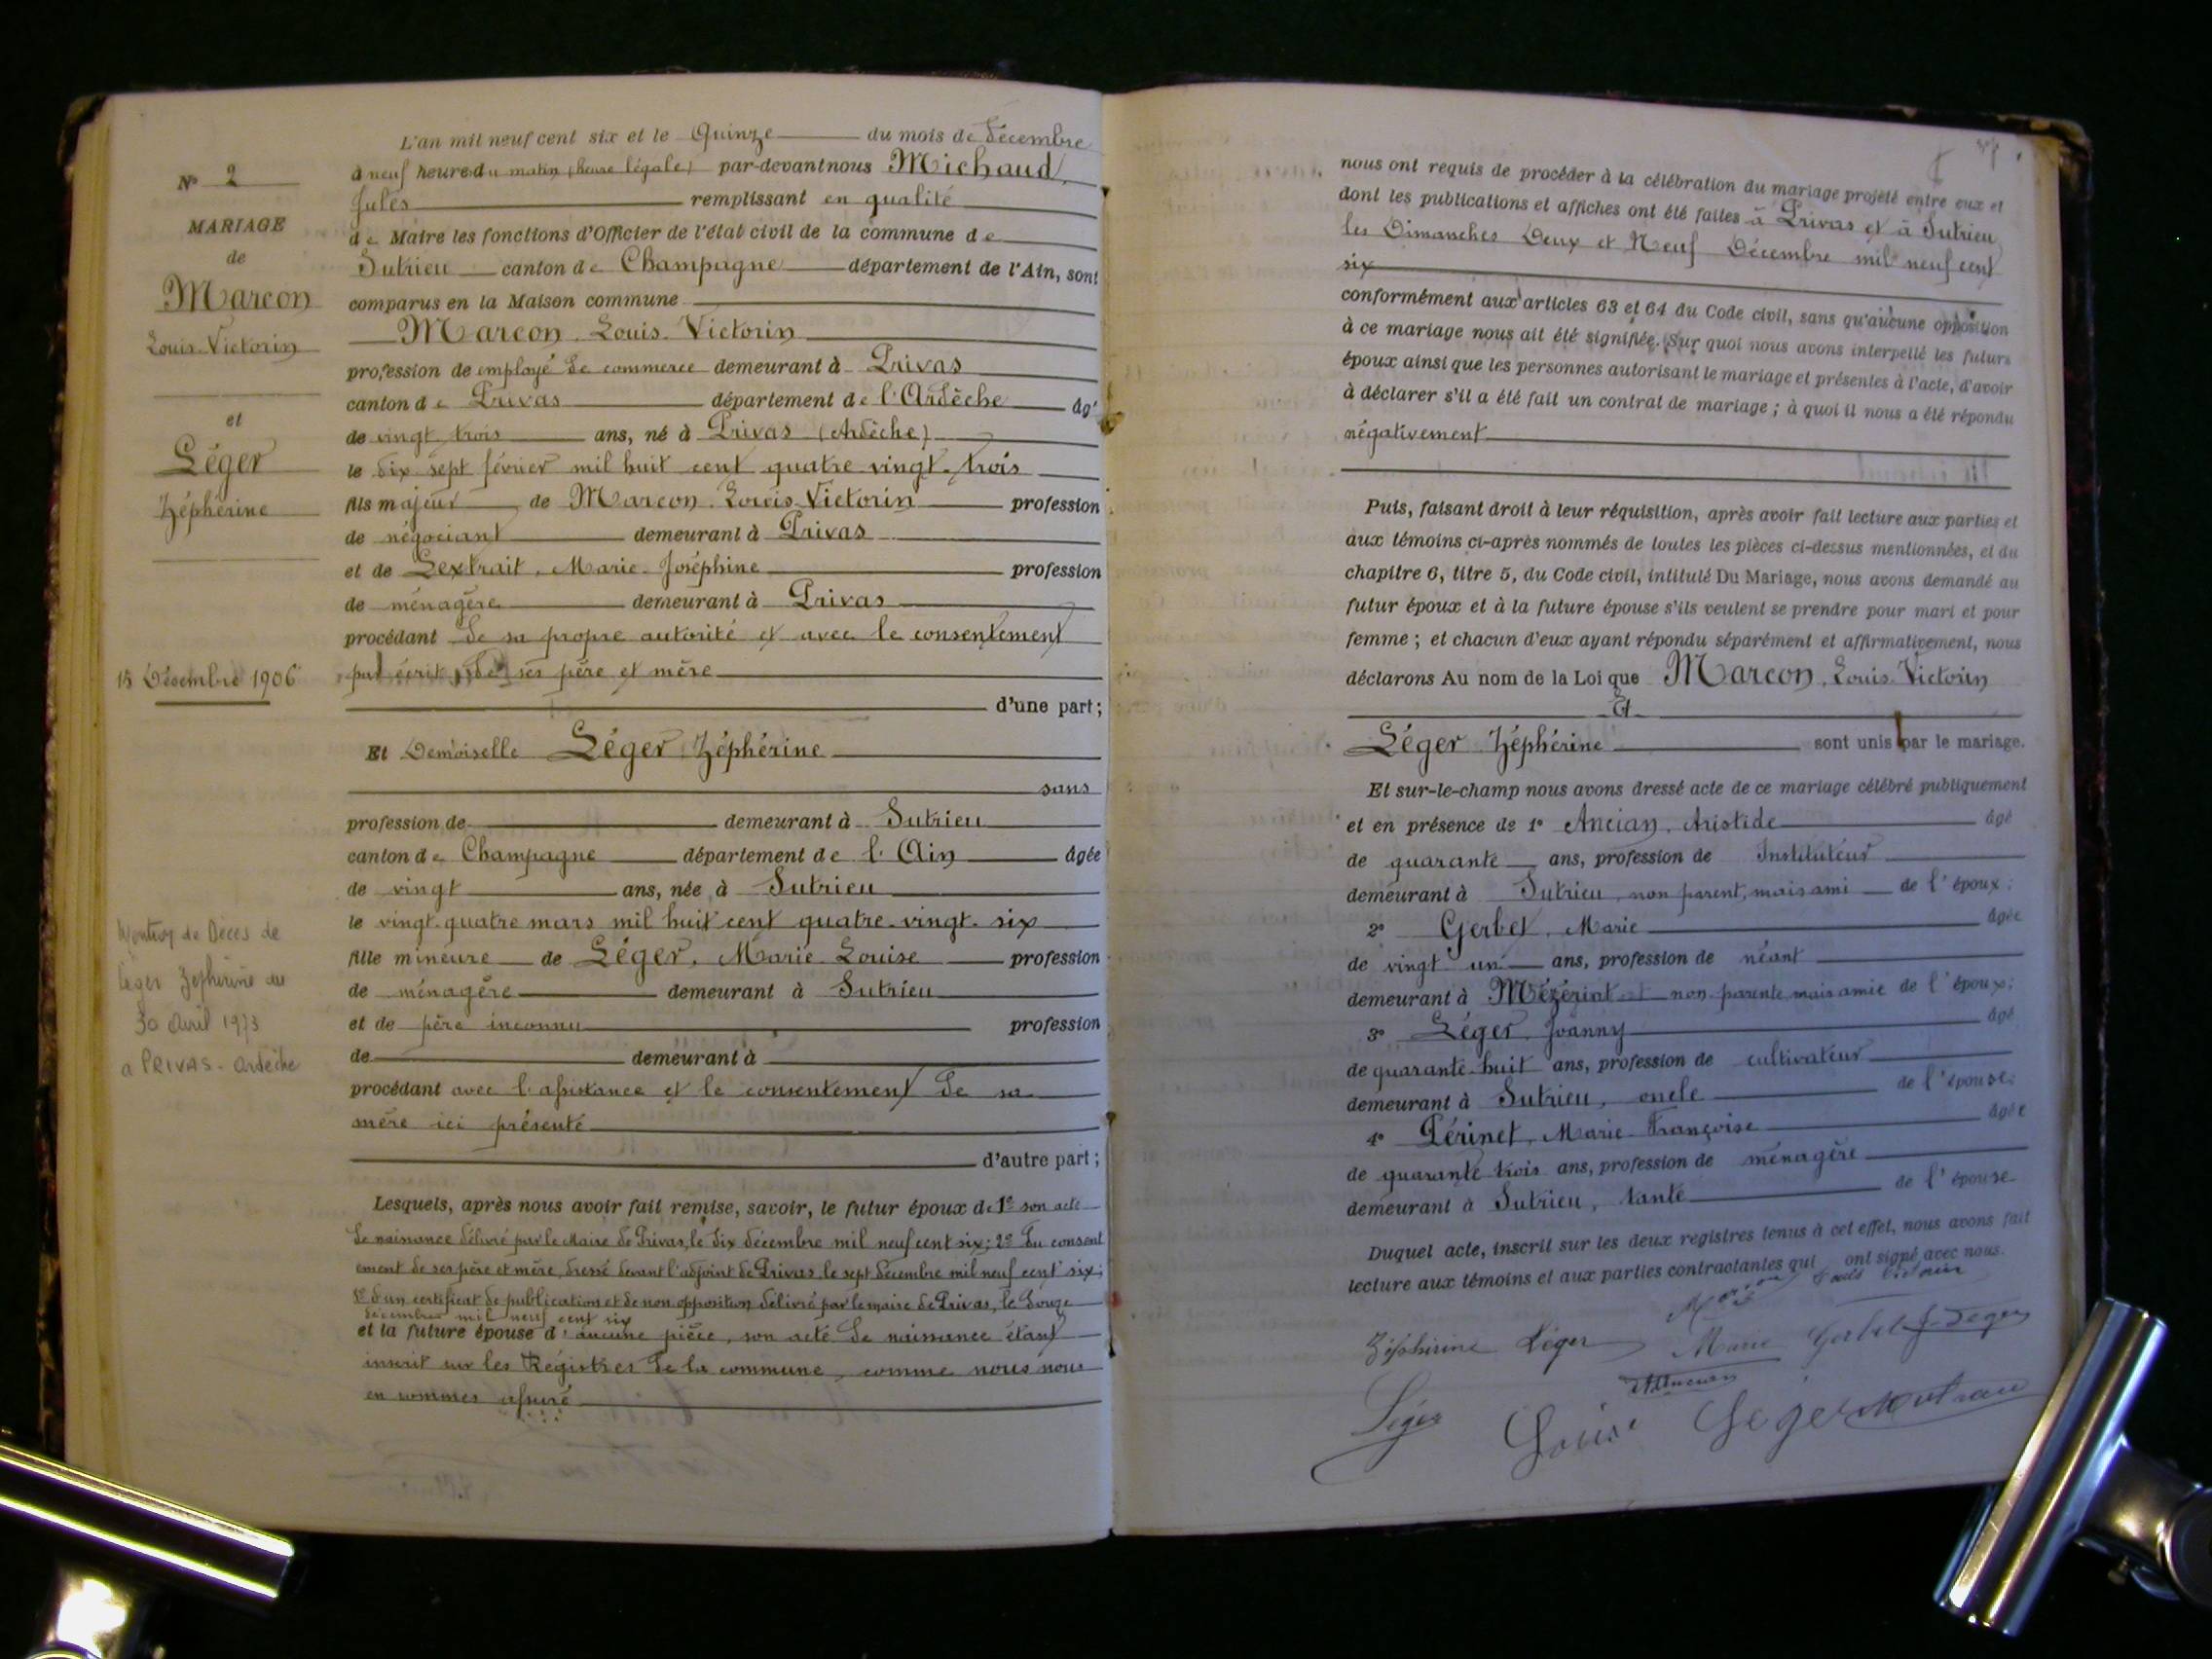 N° 2
MARIAGE
de
Marcon
Louis-Victorin
et
Léger
Zéphérine
15 Décembre 1906
de Décès de
Léger Zephirine du
30 Avril 1973
a PRIVAS - Ardèche
L'an mil neuf cent six et le Quinze du mois de Décembre
à neuf heure du matin (heure légale) par-devant nous Michaud,
Jules remplissant en qualité
de Maire les fonctions d'Officier de l'état civil de la commune de
Sutrieu canton de Champagne département de l'Ain, sont
comparus en la Maison commune
Marcon. Louis. Victorin
profession de employé de commerce demeurant à Privas
canton de Privas département de l'Ardèche âgé
de vingt trois ans, né à Privas (Ardèche)
le dix sept février mil huit cent quatre vingt-trois
fils majeur de Marcon. Louis-Victorin profession
de négociant demeurant à Privas
et de Sextrait. Marie-Joséphine profession
de ménagère demeurant à Privas
procédant de sa propre autorité et avec le consentement
par écrit de ses père et mère
d'une part;
Et Demoiselle Léger Zéphérine
sans
profession de demeurant à Sutrieu
canton de Champagne département de l'Ain âgée
de vingt ans, née à Sutrieu
le vingt-quatre mars mil huit cent quatre-vingt-six
fille mineure de Léger, Marie Louise profession
de ménagère demeurant à Sutrieu
et de père inconnu profession
de demeurant à
procédant avec l'assistance et le consentement de sa
mère ici présente
d'autre part;
Lesquels, après nous avoir fait remise, savoir, le futur époux de 1° son acte
de naissance délivré par le Maire de Privas, le dix décembre mil neuf cent six; 2° du consent
ement de ses père et mère, dressé devant l'adjoint de Privas, le sept décembre mil neuf cent six;
d'un certificat de publication et de non opposition délivré par le maire de Privas, le douze
décembre mil neuf cent six
et la future épouse d'aucune pièce, son acte de naissance étant
inscrit sur les Registres de la commune, comme nous nous
en sommes assuré
nous ont requis de procéder à la célébration du mariage projeté entre eux et
dont les publications et affiches ont été faites à Privas et à Sutrieu
les Dimanches Deux et Neuf Décembre mil neuf cent
six
conformément aux articles 63 et 64 du Code civil, sans qu'aucune opposition
à ce mariage nous ait été signifiée. Sur quoi nous avons interpellé les futurs
époux ainsi que les personnes autorisant le mariage et présentes à l'acte, d'avoir
à déclarer s'il a été fait un contrat de mariage; à quoi il nous a été répondu
négativement
Puis, faisant droit à leur réquisition, après avoir fait lecture aux parties et
aux témoins ci-après nommés de toutes les pièces ci-dessus mentionnées, et du
chapitre 6, titre 5, du Code civil, intitulé Du Mariage, nous avons demandé au
futur époux et à la future épouse s'ils veulent se prendre pour mari et pour
femme; et chacun d'eux ayant répondu séparément et affirmativement, nous
déclarons Au nom de la Loi que Marcon, Louis. Victorin
Et
Léger Zéphérine sont unis par le mariage.
Et sur-le-champ nous avons dressé acte de ce mariage célébré publiquement
et en présence de 1° Ancian, Aristide âgé
de quarante ans, profession de Instituteur
demeurant à Sutrieu, non parent, mais ami de l'époux;
2° Gerbet, Marie âgée
de vingt un ans, profession de néant
demeurant à Mézériat non parente, mais amie de l'époux;
3° Léger, Joanny âgé
de quarante-huit ans, profession de cultivateur
demeurant à Sutrieu, oncle de l'épouse;
4° Périnet, Marie-Françoise âgée
de quarante trois ans, profession de ménagère
demeurant à Sutrieu, tante de l'épouse
Duquel acte, inscrit sur les deux registres tenus à cet effet, nous avons fait
lecture aux témoins et aux parties contractantes qui ont signé avec nous.
Marcon Louis Victorin
Zéphirine Léger Marie Gerbet J. Leger
A Ancian
Léger Louise Leger